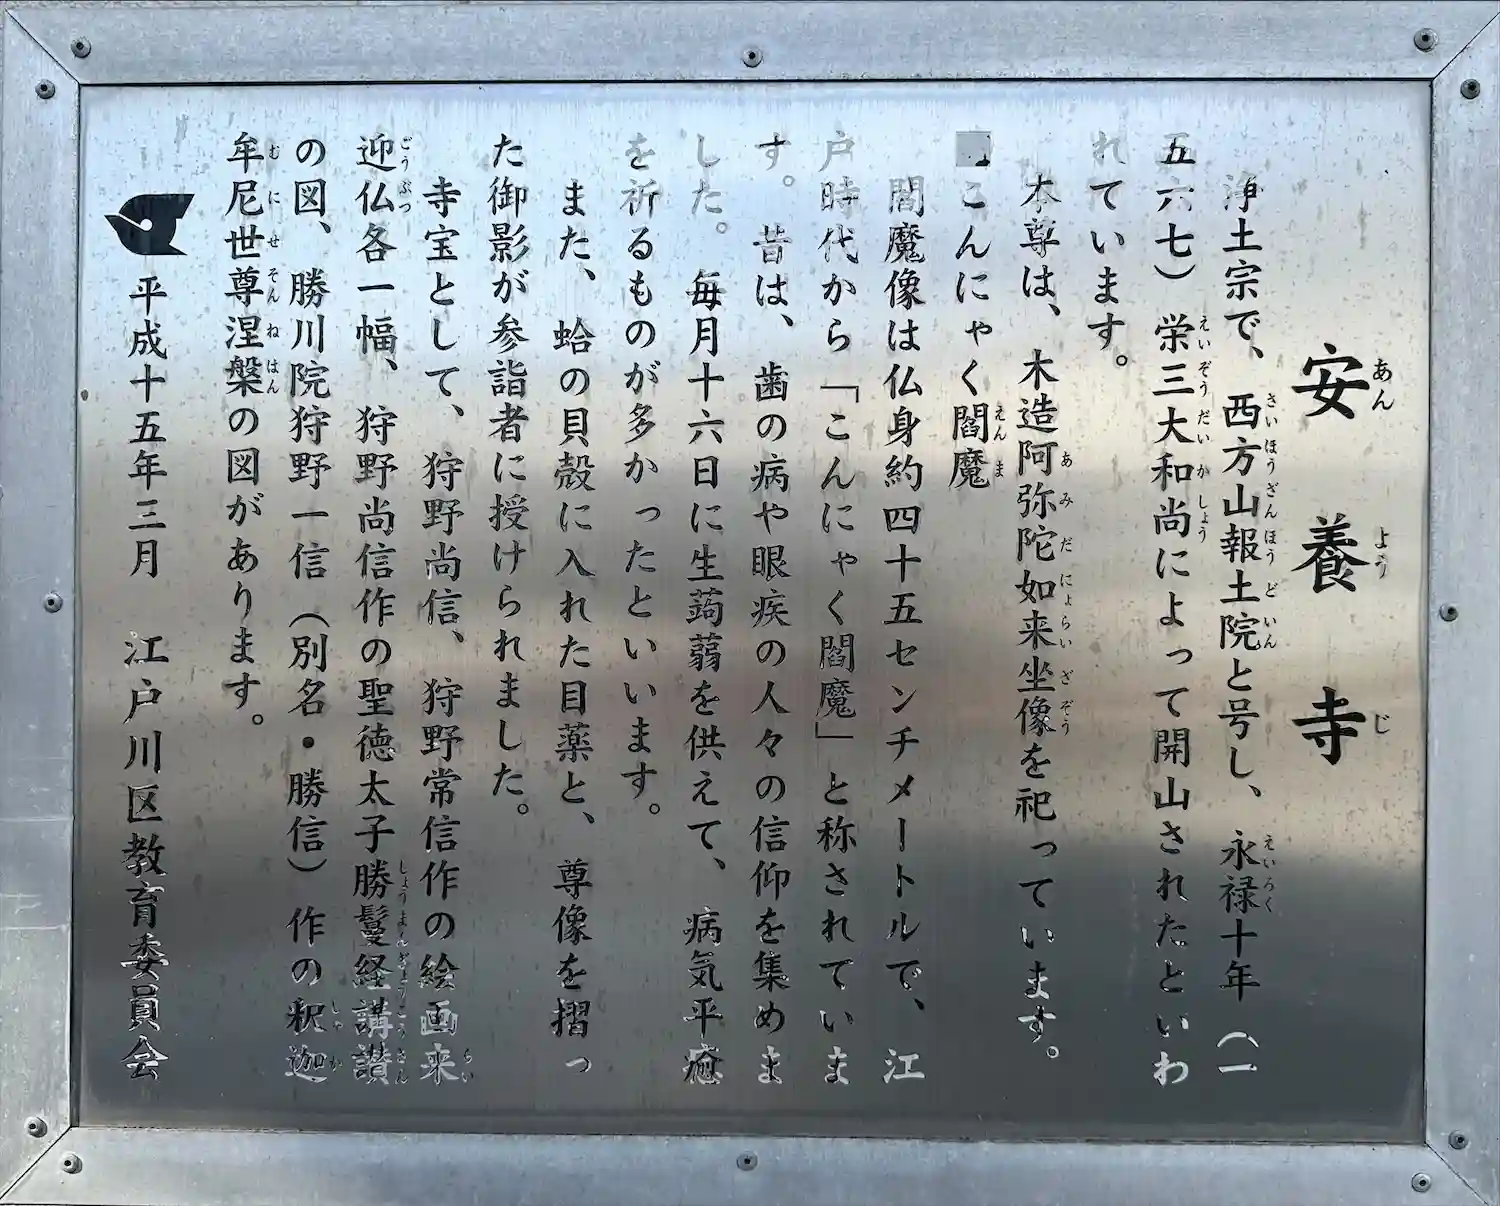 安養寺
浄土宗で、西方山報土院と号し、永禄十年（一
五六七）栄三大和尚によって開山されたといわ
れています。
本尊は、木造阿弥陀如来坐像を祀っています。
■こんにゃく閻魔
閻魔像は仏身約四十五センチメートルで、江
戸時代から「こんにゃく閻魔」と称されていま
す。昔は、歯の病や眼疾の人々の信仰を集めま
した。毎月十六日に生蒟蒻を供えて、病気平癒
を祈るものが多かったといいます。
また、蛤の貝殻に入れた目薬と、尊像を摺っ
た御影が参詣者に授けられました。
寺宝として、狩野尚信、狩野常信作の絵画来
迎仏各一幅、狩野尚信作の聖徳太子勝鬘経講讃
の図、勝川院狩野一信（別名・勝信）作の釈迦
牟尼世尊涅槃の図があります。
平成十五年三月　江戸川区教育委員会